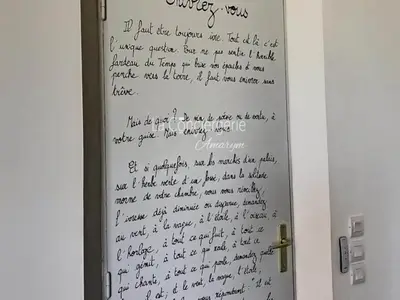 Enivrez-vous
Il faut être toujours ivre. Tout est là : c'est
l'unique question. Pour ne pas sentir l'horrible
fardeau du Temps qui brise vos épaules et vous
penche vers la terre, il faut vous enivrer sans
trêve.
Mais de quoi ? De vin, de poésie ou de vertu, à
votre guise. Mais enivrez-vous.
La Conciergerie
Amaryn
Et si quelquefois, sur les marches d'un palais,
sur l'herbe verte d'un fossé, dans la solitude
morne de votre chambre, vous vous réveillez,
l'ivresse déjà diminuée ou disparue, demandez
au vent, à la vague, à l'étoile, à l'oiseau, à
l'horloge, à tout ce qui fuit, à tout ce
qui gémit, à tout ce qui roule, à tout ce
qui chante, à tout ce qui parle, demandez quelle
heure il est ; et le vent, la vague, l'étoile,
vous répondront : "Il est